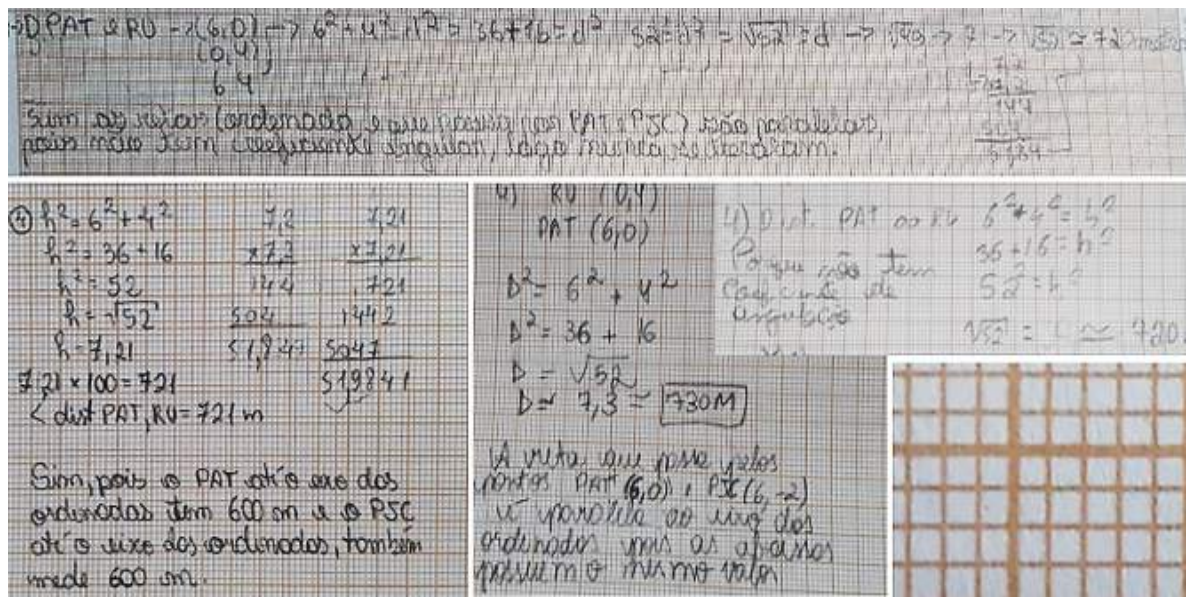 D PAT e RU -> (6,0) -> 6² + 4² = d² = 36+16 = d² 52 = d² = √52 = d -> √49 -> 7 -> √52 ≃ 720 metros
(0,4)
6 4
7,2
7,2
144
504
5184
Sim as retas (ordenada e que passa por PAT e PJC) são paralelas,
pois não tem coeficiente angular, logo nunca se
④ h² = 6² + 4²
h² = 36 + 16
h² = 52
h = √52
h = 7,21
7,21 x 100 = 721
< dist PAT, RU = 721 m
7,2
x 7,2
144
504
51,84
7,21
x 7,21
721
1442
5047
519841
Sim, pois o PAT até o eixo das
ordenadas tem 600 m e o PJC
até o eixo das ordenadas, também
mede 600 m.
4) RU (0,4)
PAT (6,0)
D² = 6² + 4²
D² = 36 + 16
D = √52
D ≃ 7,3 = 730M
A reta que passa pelos
pontos PAT (6,0) e PJC (6,-2)
é paralela ao eixo das
ordenadas pois as
possuem o mesmo valor
4) Dist. PAT ao RU 6² + 4² = h²
36 + 16 = h²
52 = h²
√52 = ≃ 720
Porque não tem
de